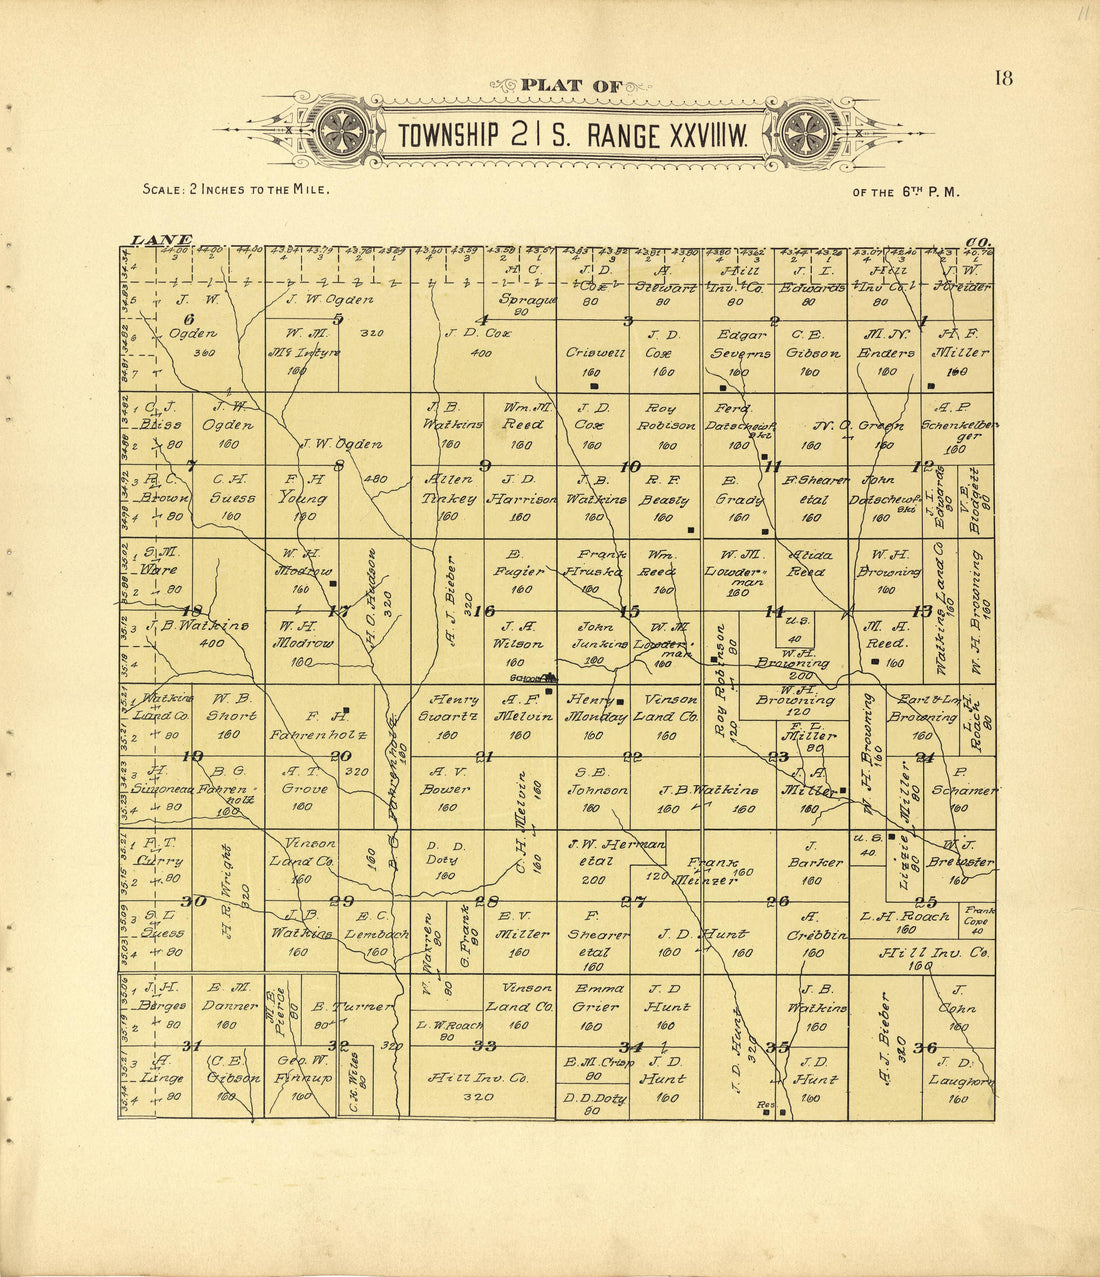 11
18
PLAT OF
TOWNSHIP 21 S. RANGE XXVIII W.
SCALE: 2 INCHES TO THE MILE.
OF THE 6TH P. M.
LANE
CO.
J. W.
Ogden
360
6
J. W. Ogden
5
320
W. M.
McIntyre
160
H C.
Sprague
80
4
J. D. Cox
400
J. D.
Cox
80
A.
Stewart
80
3
Criswell
160
J. D.
Cox
160
Hill
Inv. Co.
80
J. I.
Edwards
80
2
Edgar
Severns
160
C. E.
Gibson
160
Hill
Inv Co.
80
J. W.
Kreider
1
M. N.
Enders
160
H. F.
Miller
160
C. J.
Bliss
80
J. W.
Ogden
160
7
R. C.
Brown
80
C. H.
Suess
160
J. W. Ogden
480
8
F. H
Young
160
J. B.
Watkins
160
Wm. M.
Reed
160
9
Allen
Tinkey
160
J. D.
Harrison
160
J. D.
Cox
160
Roy
Robison
160
10
J. B.
Watkins
160
R. F.
Beasly
160
Ferd.
Datschewf
ski
160
N. O. Green
160
11
E.
Grady
160
F. Shearer
etal
160
A. P.
Schenkelber
ger
160
12
John
Datschewf
ski
160
J. I.
Edwards
80
V. E.
Blodgett
80
S. M.
Ware
80
18
J. B. Watkins
400
W. H.
Modrow
160
17
W. H.
Modrow
160
H. O. Hudson
320
A. J. Bieber
320
E.
Fugier
160
16
J. A.
Wilson
160
Frank
Hruska
160
Wm.
Reed
160
15
John
Junkins
160
W. M
Lowder-
man
160
W. M.
Lowder-
man
160
Alida
Reed
160
14
Roy Robinson
80
120
U.S.
40
W. H.
Browning
200
W. H.
Browning
160
13
M. A.
Reed.
160
Watkins Land Co
160
W. H. Browning
160
Watkins
Land Co.
80
W. B.
Short
160
19
H.
Simoneau
80
B. G.
Fahren-
holz
160
F. H.
Fahrenholz
320
20
A. T.
Grove
160
B. G. Fahrenholz
160
160
Henry
Swartz
160
A. F.
Melvin
160
21
A. V.
Bower
160
C. H. Melvin
160
160
Henry
Monday
160
Vinson
Land Co.
160
22
S. E.
Johnson
160
J. B. Watkins
160
160
W. H.
Browning
120
F. L.
Miller
80
23
J. A.
Miller
W. H. Browning
160
Browning
160
L. H.
Roach
80
24
Lizzie Miller
80
80
P.
Schamer
160
F. T.
Curry
80
H. R. Wright
320
30
S. L.
Suess
80
Vinson
Land Co.
160
29
J. B.
Watkins
160
E. C.
Lembach
160
D. D.
Doty
160
28
V. Warren
80
80
G. Frank
80
E. V.
Miller
160
J. W. Herman
etal
200
120
Frank
Meinzer
160
27
F.
Shearer
etal
160
J. D. Hunt
160
160
J.
Barker
160
26
A.
Cribbin
160
U.S.
40
W. J.
Brewster
160
25
L. H. Roach
160
Frank
Coxe
40
Hill Inv. Co.
160
J. H.
Borges
80
E. M.
Danner
160
31
A.
Linge
80
C. E.
Gibson
160
M. E.
Pierce
80
E. Turner
80
320
32
Geo. W.
Finnup
160
C. H. Wiles
80
Vinson
Land Co.
160
L. W. Roach
80
33
Hill Inv. Co.
320
Emma
Grier
160
J. D
Hunt
160
34
E. M. Crisp
80
D. D. Doty
80
J. D.
Hunt
160
J. D. Hunt
320
J. B.
Watkins
160
35
J. D
Hunt
160
Res.
A. J. Bieber
320
J.
Cohn
160
36
J. D.
Laughorn
160